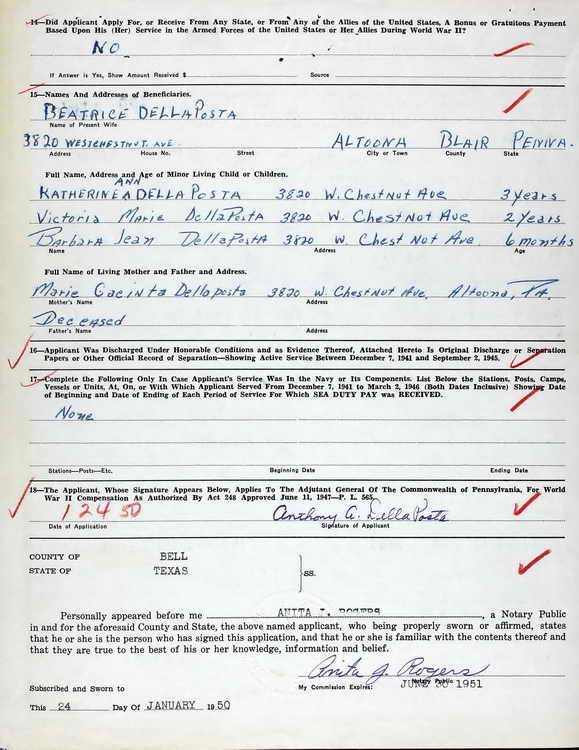 14—Did Applicant Apply For, or Receive From Any State, or From Any of the Allies of the United States, A Bonus or Gratuitous Payment
Based Upon His (Her) Service in the Armed Forces of the United States or Her Allies During World War II?
NO
If Answer is Yes, Show Amount Received $ Source
15—Names And Addresses of Beneficiaries.
BEATRICE DELLAPOSTA
Name of Present Wife
3820 WESTCHESTNUT. AVE ALTOONA BLAIR PENNA.
Address House No. Street City or Town County State
Full Name, Address and Age of Minor Living Child or Children.
ANN
KATHERINE DELLA POSTA 3820 W. CHESTNUT AVE 3 years
Victoria Marie DellaPOSTA 3820 W. CHESTNUT AVE 2 years
Barbara Jean DellaPOSTA 3820 W. CHEST NUT Ave. 6 months
Name Address Age
Full Name of Living Mother and Father and Address.
Marie Gacinta Dellaposta 3820 W. CHESTNUT Ave. Altoona, PA.
Mother's Name Address
Deceased
Father's Name Address
16—Applicant Was Discharged Under Honorable Conditions and as Evidence Thereof, Attached Hereto Is Original Discharge or Separation
Papers or Other Official Record of Separation—Showing Active Service Between December 7, 1941 and September 2, 1945.
17—Complete the Following Only In Case Applicant's Service Was In the Navy or Its Components. List Below the Stations, Posts, Camps,
Vessels or Units, At, On, or With Which Applicant Served From December 7, 1941 to March 2, 1946 (Both Dates Inclusive) Showing Date
of Beginning and Date of Ending of Each Period of Service For Which SEA DUTY PAY was RECEIVED.
None
Stations—Posts—Etc. Beginning Date Ending Date
18—The Applicant, Whose Signature Appears Below, Applies To The Adjutant General Of The Commonwealth of Pennsylvania, For World
War II Compensation As Authorized By Act 248 Approved June 11, 1947—P. L. 565.
1 24 50 Anthony A. DellaPosta
Date of Application Signature of Applicant
COUNTY OF BELL
STATE OF TEXAS
ss.
Personally appeared before me ANITA J. ROGERS, a Notary Public
in and for the aforesaid County and State, the above named applicant, who being properly sworn or affirmed, states
that he or she is the person who has signed this application, and that he or she is familiar with the contents thereof and
that they are true to the best of his or her knowledge, information and belief.
Anita J. Rogers
Notary Public
Subscribed and Sworn to My Commission Expires: JUNE 30 1951
This 24 Day Of JANUARY 1950